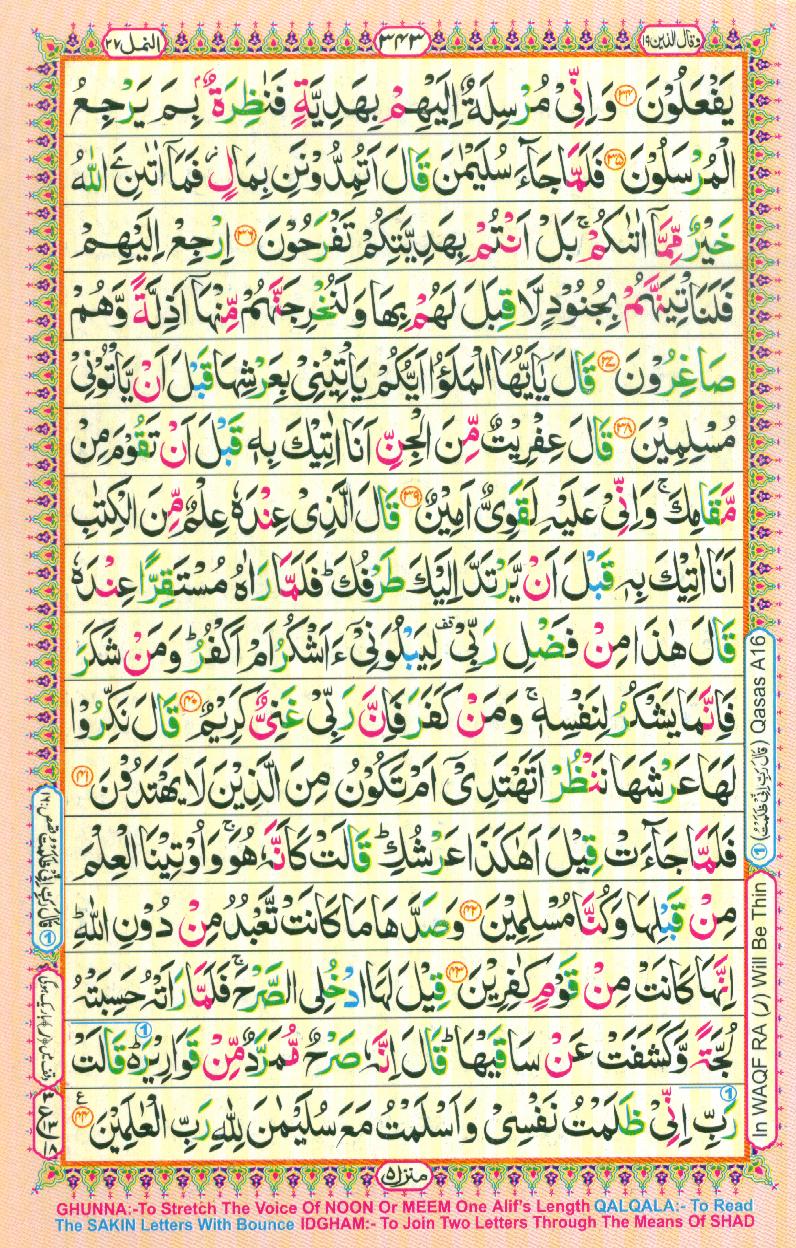 وقال الذین ۱۹
۳۴۳
النمل ۲۷
یَفْعَلُوْنَ ﴿۳۴﴾ وَ اِنِّیْ مُرْسِلَةٌ اِلَیْهِمْ بِهَدِیَّةٍ فَنٰظِرَةٌۢ بِمَ یَرْجِعُ
الْمُرْسَلُوْنَ ﴿۳۵﴾ فَلَمَّا جَآءَ سُلَیْمٰنَ قَالَ اَتُمِدُّوْنَنِ بِمَالٍ ؗ فَمَاۤ اٰتٰىنِۦَ اللّٰهُ
خَیْرٌ مِّمَّاۤ اٰتٰىكُمْ ۚ بَلْ اَنْتُمْ بِهَدِیَّتِكُمْ تَفْرَحُوْنَ ﴿۳۶﴾ اِرْجِعْ اِلَیْهِمْ
فَلَنَاْتِیَنَّهُمْ بِجُنُوْدٍ لَّا قِبَلَ لَهُمْ بِهَا وَ لَنُخْرِجَنَّهُمْ مِّنْهَاۤ اَذِلَّةً وَّ هُمْ
صَاغِرُوْنَ ﴿۳۷﴾ قَالَ یٰۤاَیُّهَا الْمَلَؤُا اَیُّكُمْ یَاْتِیْنِیْ بِعَرْشِهَا قَبْلَ اَنْ یَّاْتُوْنِیْ
مُسْلِمِیْنَ ﴿۳۸﴾ قَالَ عِفْرِیْتٌ مِّنَ الْجِنِّ اَنَا اٰتِیْكَ بِهٖ قَبْلَ اَنْ تَقُوْمَ مِنْ
مَّقَامِكَ ۚ وَ اِنِّیْ عَلَیْهِ لَقَوِیٌّ اَمِیْنٌ ﴿۳۹﴾ قَالَ الَّذِیْ عِنْدَهٗ عِلْمٌ مِّنَ الْكِتٰبِ
اَنَا اٰتِیْكَ بِهٖ قَبْلَ اَنْ یَّرْتَدَّ اِلَیْكَ طَرْفُكَ ؕ فَلَمَّا رَاٰهُ مُسْتَقِرًّا عِنْدَهٗ
قَالَ هٰذَا مِنْ فَضْلِ رَبِّیْ ۫ۖ لِیَبْلُوَنِیْۤ ءَاَشْكُرُ اَمْ اَكْفُرُ ؕ وَ مَنْ شَكَرَ
فَاِنَّمَا یَشْكُرُ لِنَفْسِهٖ ۚ وَ مَنْ كَفَرَ فَاِنَّ رَبِّیْ غَنِیٌّ كَرِیْمٌ ﴿۴۰﴾ قَالَ نَكِّرُوْا
لَهَا عَرْشَهَا نَنْظُرْ اَتَهْتَدِیْۤ اَمْ تَكُوْنُ مِنَ الَّذِیْنَ لَا یَهْتَدُوْنَ ﴿۴۱﴾
فَلَمَّا جَآءَتْ قِیْلَ اَهٰكَذَا عَرْشُكِ ؕ قَالَتْ كَاَنَّهٗ هُوَ ۚ وَ اُوْتِیْنَا الْعِلْمَ
مِنْ قَبْلِهَا وَ كُنَّا مُسْلِمِیْنَ ﴿۴۲﴾ وَ صَدَّهَا مَا كَانَتْ تَّعْبُدُ مِنْ دُوْنِ اللّٰهِ ؕ
اِنَّهَا كَانَتْ مِنْ قَوْمٍ كٰفِرِیْنَ ﴿۴۳﴾ قِیْلَ لَهَا ادْخُلِی الصَّرْحَ ۚ فَلَمَّا رَاَتْهُ حَسِبَتْهُ
لُجَّةً وَّ كَشَفَتْ عَنْ سَاقَیْهَا ؕ قَالَ اِنَّهٗ صَرْحٌ مُّمَرَّدٌ مِّنْ قَوَارِیْرَ ؕ۬ قَالَتْ
رَبِّ اِنِّیْ ظَلَمْتُ نَفْسِیْ وَ اَسْلَمْتُ مَعَ سُلَیْمٰنَ لِلّٰهِ رَبِّ الْعٰلَمِیْنَ ﴿۴۴﴾
منزل ۵
① (قَالَ رَبِّ اِنِّیْ ظَلَمْتُ) Qasas A16
In WAQF RA (ر) Will Be Thin
GHUNNA:-To Stretch The Voice Of NOON Or MEEM One Alif's Length QALQALA:- To Read
The SAKIN Letters With Bounce IDGHAM:- To Join Two Letters Through The Means Of SHAD